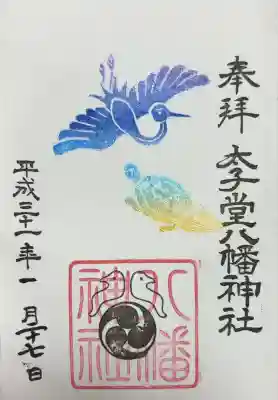 奉拝 太子堂八幡神社
八幡
神社
平成三十一年一月二十七日